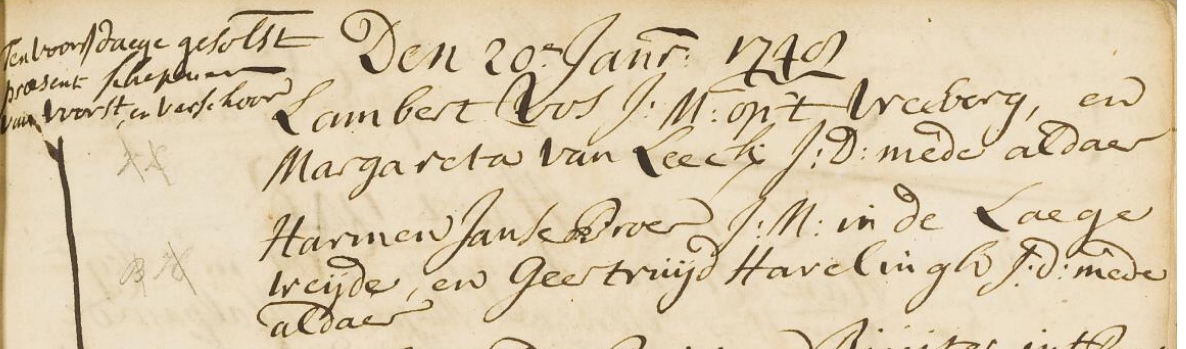 Ten voors: daege gesolst
præsent schepenen
van Voorst, en Verschoor
Den 20en Janr: 1748
Lambert Vos J: M: op't Vreeborg, en
Margareta van Leeck J: D: mede aldaer
Harmen Janse Broer J: M: in de Laege
weijde, en Geertruijd Harelingh J: D: mede
aldaer